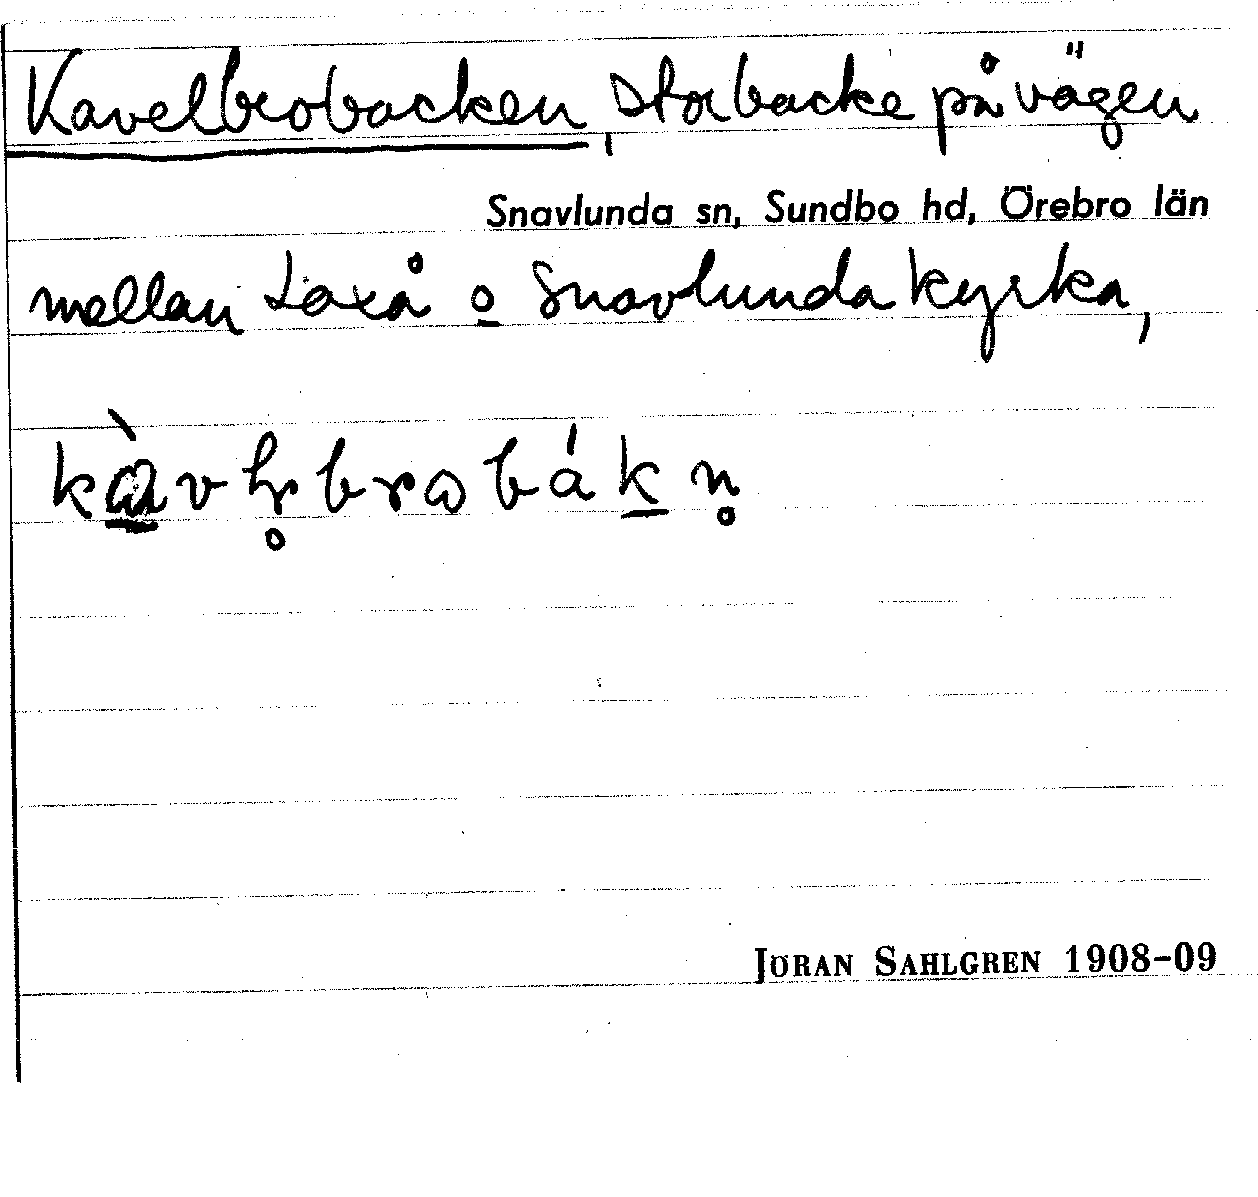 Kavelbrobacken, stor backe på vägen
Snavlunda sn, Sundbo hd, Örebro län
mellan Laxå o Snavlunda kyrka,
JÖRAN SAHLGREN 1908-09